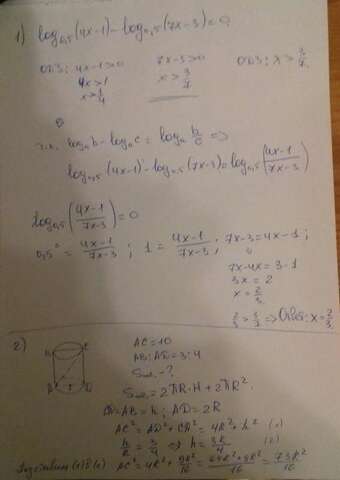 1) log₀,₅(4x-1) - log₀,₅(7x-3) = 0
ОДЗ: 4x-1>0   7x-3>0   ОДЗ: x > 3/7
4x>1   x > 3/7
x > 1/4
т.к. logₐb - logₐc = logₐ b/c ⇒
log₀,₅(4x-1) - log₀,₅(7x-3) = log₀,₅(4x-1 / 7x-3)
log₀,₅(4x-1 / 7x-3) = 0
0,5⁰ = 4x-1 / 7x-3 ; 1 = 4x-1 / 7x-3 ; 7x-3 = 4x-1 ;
7x-4x = 3-1
3x = 2
x = 2/3
2/3 > 3/7 ⇒ Ответ: x = 2/3
2)
AC = 10
AB : AD = 3 : 4
- ?
= 2πR·H + 2πR²
= AB = h ; AD = 2R
AC² = AD² + CD² = 4R² + h² (1)
h/R = 3/4 ⇒ h = 3R/4 (2)
AC² = 4R² + 9R²/16 = 64R²+9R² / 16 = 73R²/16